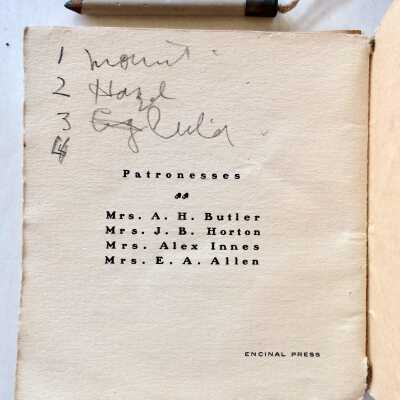 1
2 Hazel
3 Julia
4
Patronesses
Mrs. A. H. Butler
Mrs. J. B. Horton
Mrs. Alex Innes
Mrs. E. A. Allen
ENCINAL PRESS